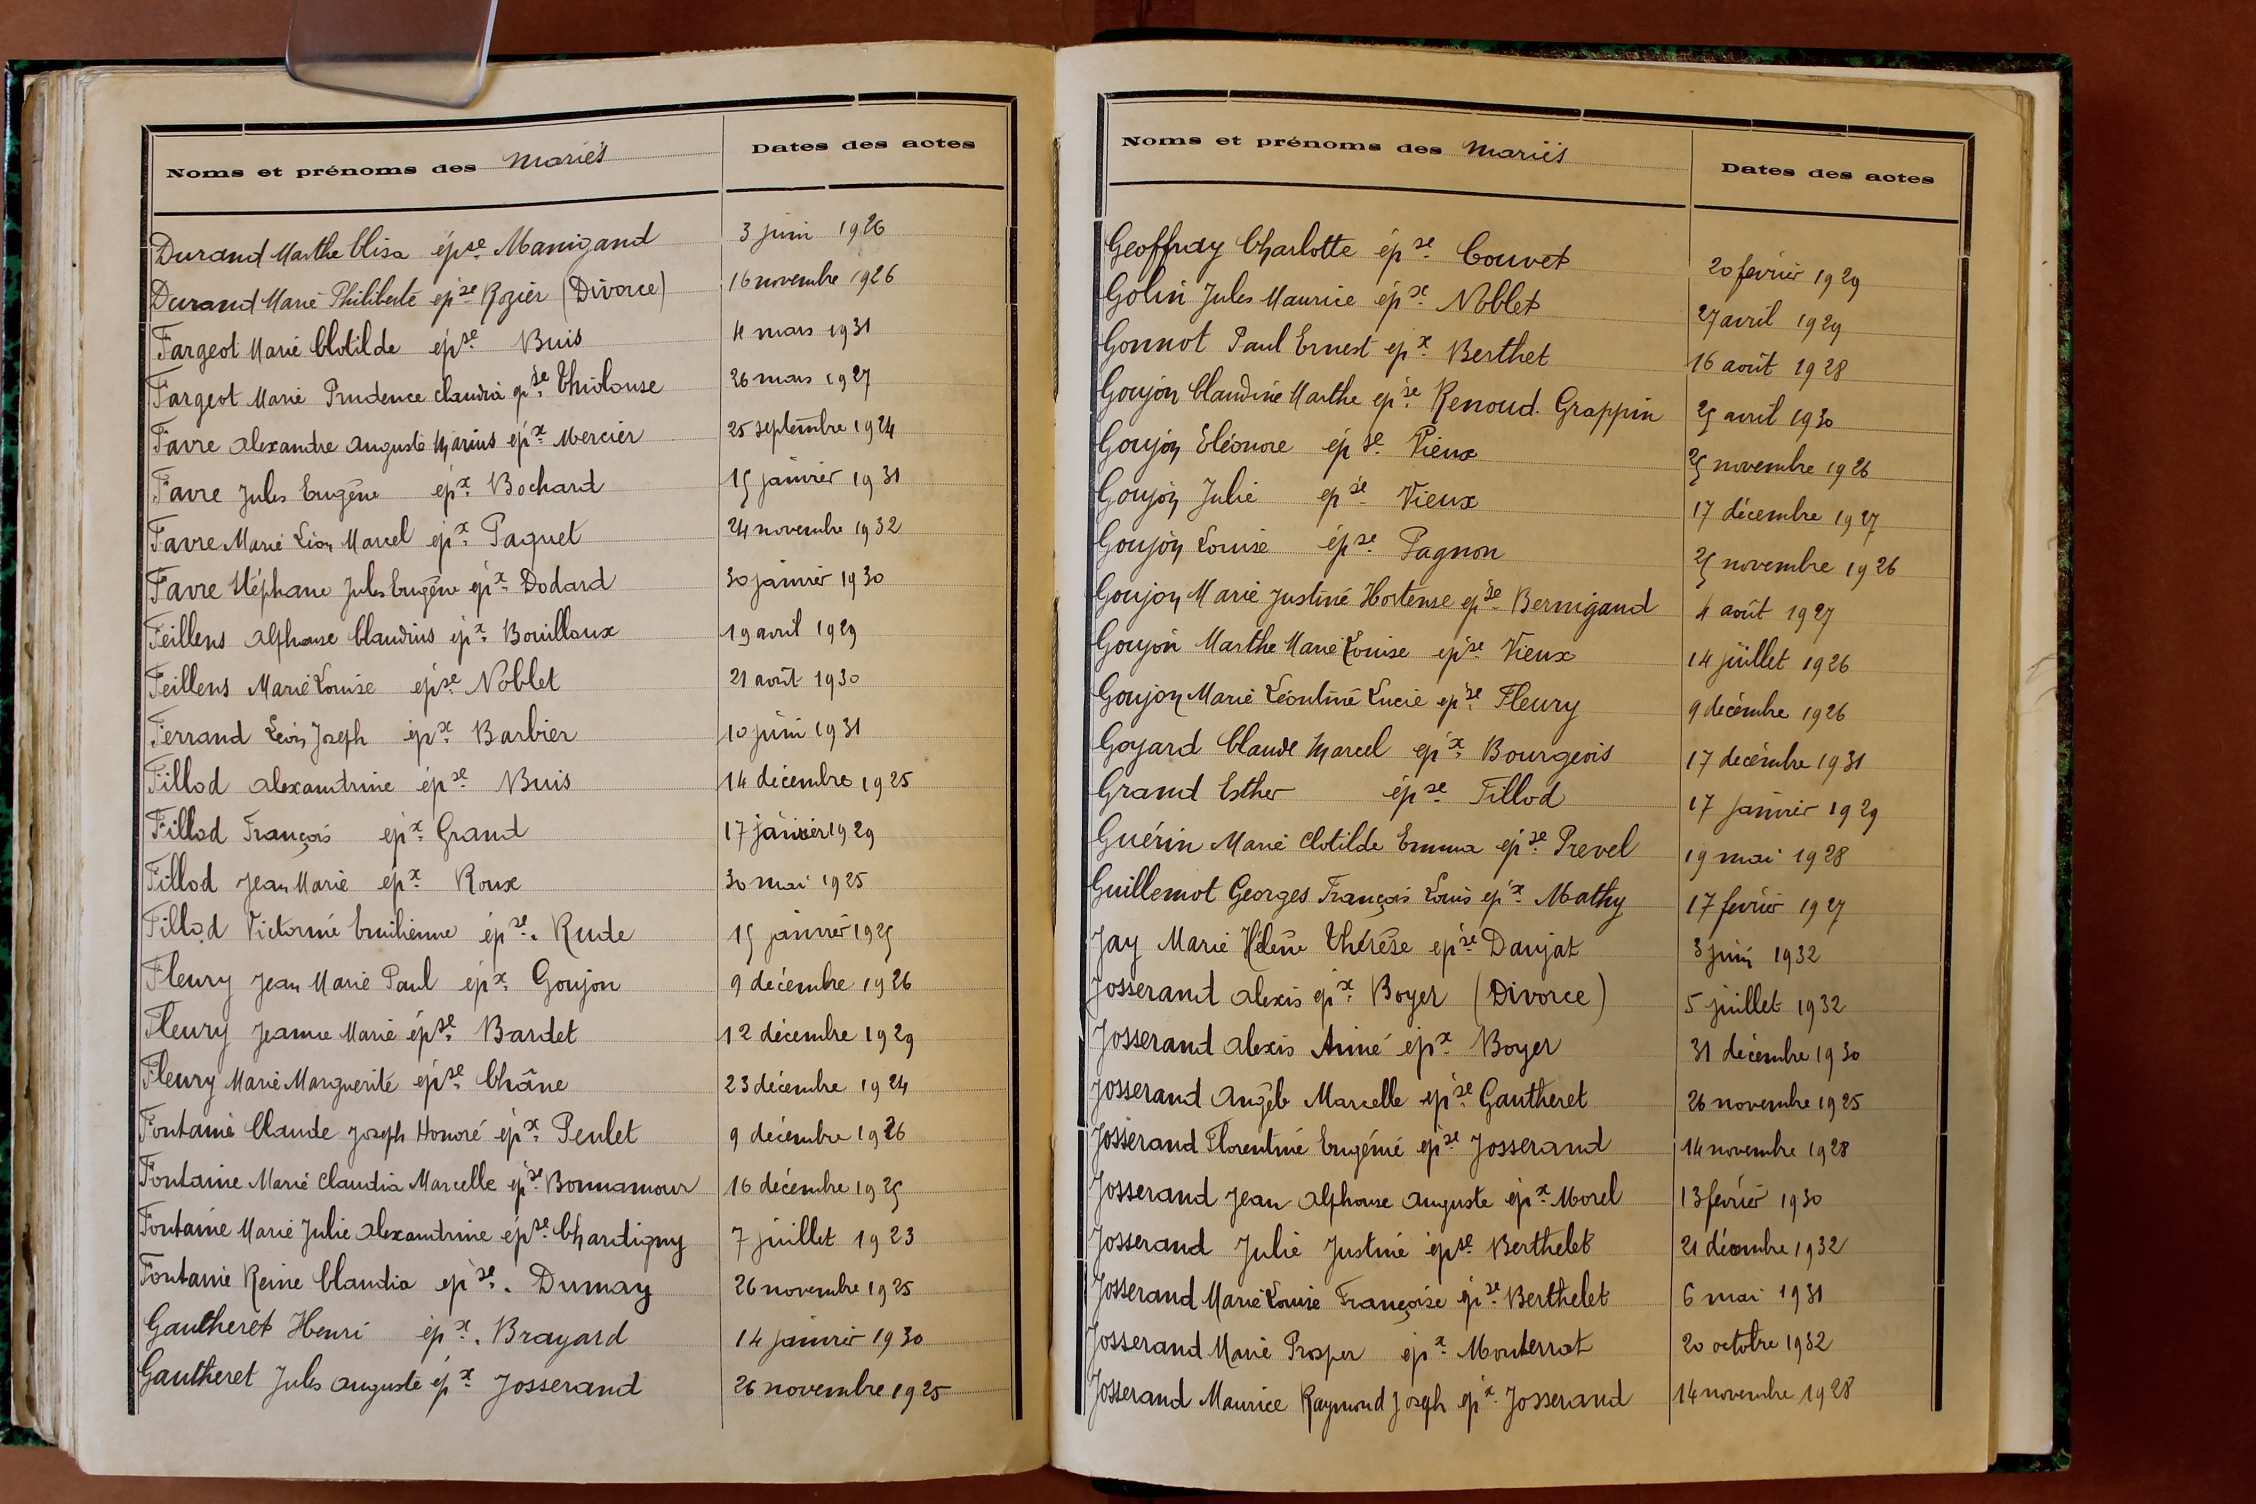 Noms et prénoms des mariés Dates des actes
Durand Marthe Elisa épse Manigand 3 juin 1926
Durand Marie Philiberte épse Rozier (Divorce) 16 novembre 1926
Fargeot Marie Clotilde épse Buis 4 mars 1931
Fargeot Marie Prudence Claudia épse Thiolouse 26 mars 1927
Favre Alexandre Auguste Marius épx Mercier 25 septembre 1924
Favre Jules Eugène épx Bochard 15 janvier 1931
Favre Marie Léon Marcel épx Paquet 24 novembre 1932
Favre Stéphane Jules Eugène épx Dodard 30 janvier 1930
Feillens Alphonse Claudius épx Bouilloux 19 avril 1929
Feillens Marie Louise épse Noblet 21 août 1930
Ferrand Léon Joseph épx Barbier 10 juin 1931
Fillod Alexandrine épse Buis 14 décembre 1925
Fillod François épx Grand 17 janvier 1929
Fillod Jean Marie épx Roux 30 mai 1925
Fillod Victorine Emilienne épse Rude 15 janvier 1925
Fleury Jean Marie Paul épx Goujon 9 décembre 1926
Fleury Jeanne Marie épse Bardet 12 décembre 1929
Fleury Marie Marguerite épse Châne 23 décembre 1924
Fontaine Claude Joseph Honoré épx Peulet 9 décembre 1926
Fontaine Marie Claudia Marcelle épse Bonnamour 16 décembre 1925
Fontaine Marie Julie Alexandrine épse Chardigny 7 juillet 1923
Fontaine Reine Claudia épse Dumay 26 novembre 1925
Gautheret Henri épx Brayard 14 janvier 1930
Gautheret Jules Auguste épx Josserand 26 novembre 1925
Noms et prénoms des mariés Dates des actes
Geoffray Charlotte épse Couvet 20 février 1929
Golin Jules Maurice épse Noblet 27 avril 1929
Gonnot Paul Ernest épx Berthet 16 août 1928
Goujon Claudine Marthe épse Renoud-Grappin 25 avril 1930
Goujon Eléonore épse Vieux 25 novembre 1926
Goujon Julie épse Vieux 17 décembre 1927
Goujon Louise épse Pagnon 25 novembre 1926
Goujon Marie Justine Hortense épse Bernigaud 4 août 1927
Goujon Marthe Marie Louise épse Vieux 14 juillet 1926
Goujon Marie Léontine Lucie épse Fleury 9 décembre 1926
Goyard Claude Marcel épx Bourgeois 17 décembre 1931
Grand Esther épse Fillod 17 janvier 1929
Guérin Marie Clotilde Emma épse Prevel 19 mai 1928
Guillemot Georges François Louis épx Mathy 17 février 1927
Jay Marie Hélène Thérèse épse Daujat 3 juin 1932
Josserand Alexis épx Boyer (Divorce) 5 juillet 1932
Josserand Alexis Aimé épx Boyer 31 décembre 1930
Josserand Angèle Marcelle épse Gautheret 26 novembre 1925
Josserand Florentine Eugénie épse Josserand 14 novembre 1928
Josserand Jean Alphonse Auguste épx Morel 13 février 1930
Josserand Julie Justine épse Berthelet 21 décembre 1932
Josserand Marie Louise Françoise épse Berthelet 6 mai 1931
Josserand Marie Prosper épx Monterrat 20 octobre 1932
Josserand Maurice Raymond Joseph épx Josserand 14 novembre 1928